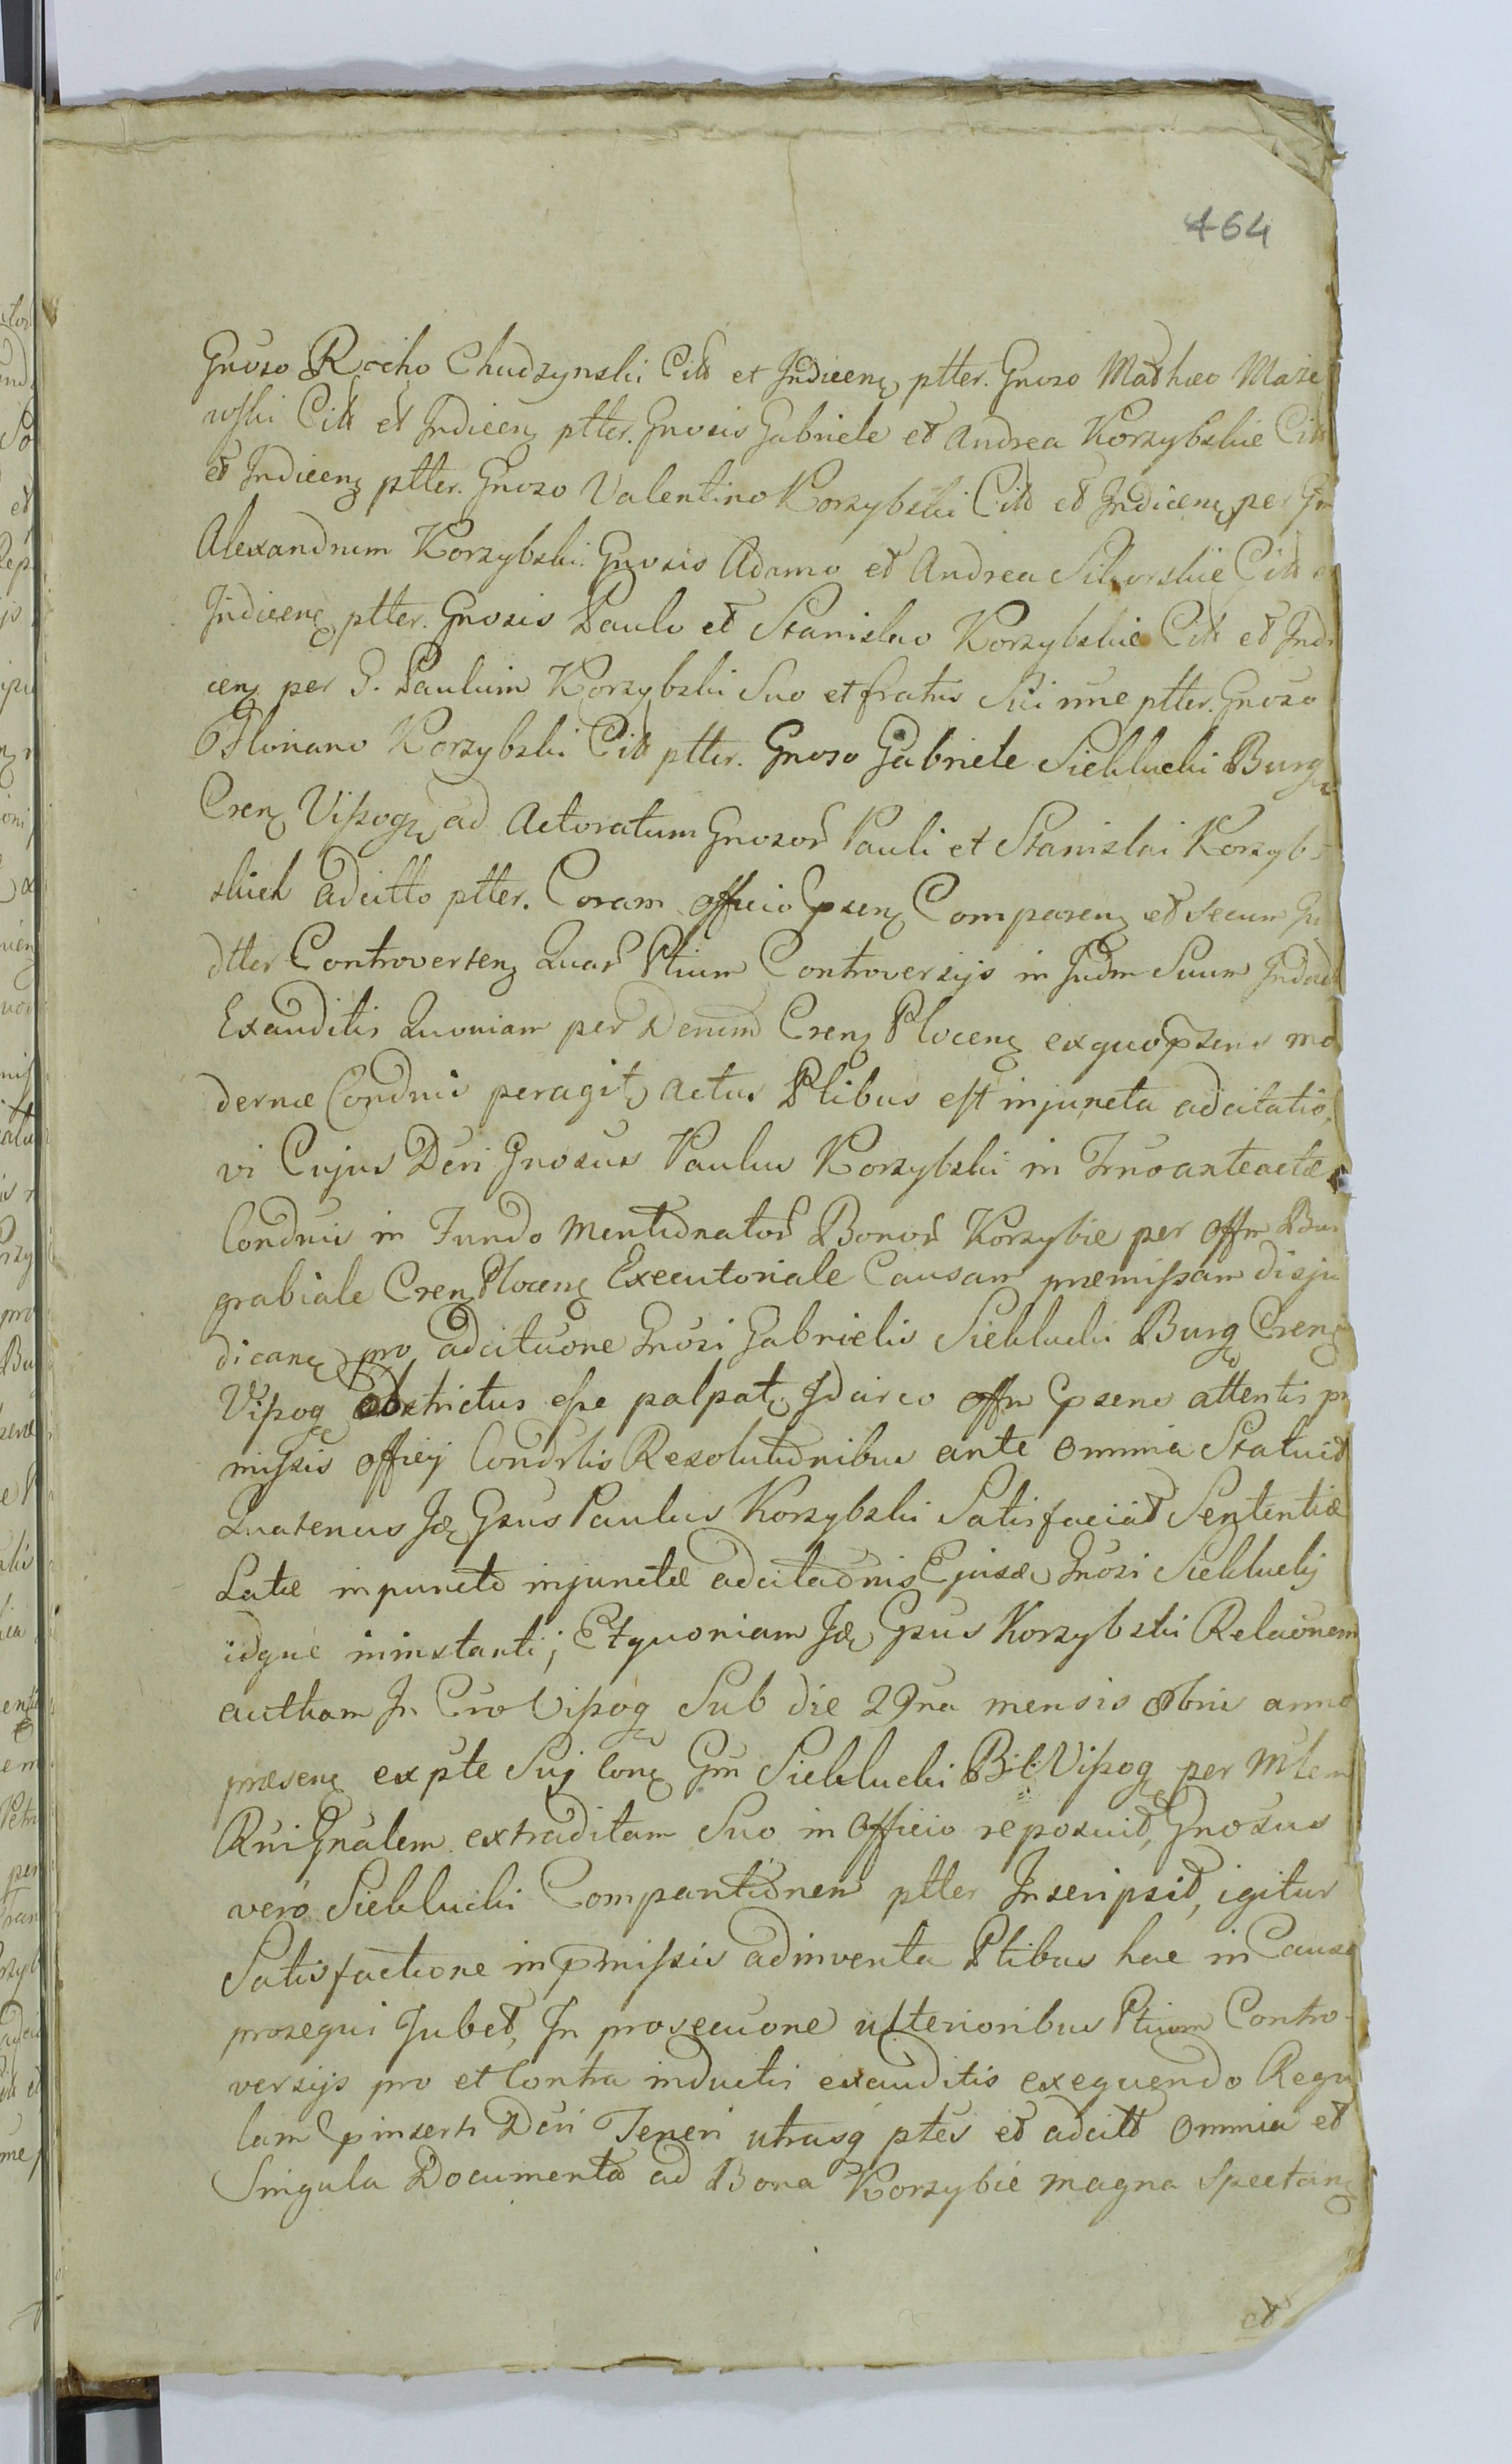 464
Gnoso Rocho Chudzynski Citt et Indicenę ptter. Gnoso Mathæo Maze
wski Citt et Indicenę ptter. Gnosis Gabriele et Andrea Korzybskie Citt
et Indicenę ptter. Gnoso Valentino Korzybski Citt et Indicenę per Gn
Alexandrum Korzybski. Gnosis Adamo et Andrea Sikorskie Citt et
Indicenę ptter. Gnosis Paulo et Stanislao Korzybskie Citt et Indi
cenę per G. Paulum Korzybski Suo et fratris Sui nne ptter. Gnoso
Floriano Korzybski Citt ptter. Gnoso Gabriele Siekłucki Burgę
Crenę Vissogę ad Actoratum Gnosor Pauli et Stanislai Korzyb-
skich adcitto ptter. Coram officio Cpsenę Comparenę et secum
dtter Controvertenę Quar Ptium Controversijs in Judm Suum
Exauditis Quoniam per Decrum Crenę Plocenę ex quo psens mo
dernæ Condnis peragitę actus Ptibus est injuncta adcitatio,
vi Cujus Dcri Gnosus Paulus Korzybski in Trno anteactæ
Condnis in Fundo Mentionator Bonor Korzybie per offm Bur
grabiale Crenę Plocenę Executoriale Causam præmissam diju
dicanę pro adcituone Gnosi Gabrielis Siekłucki Burgę Crenę
Vissogę obstrictus esse palpatę Idcirco offm Cpsens attentis præ
missis officij Condrlis Resolutionibus ante omnia Statuit
Quatenus Idę Gsus Paulus Korzybski Satisfaciat Sententiæ
Latæ in puncto injunctæ adcitaōnis Ejusdę Gnosi Siekłucki
idque in instanti; Et quoniam Idę Gsus Korzybski Relaōnem
acttham In Cro Vissogę Sub die 29na mensis 8bris anno
præsenę ex pte Sui Conę Gm Siekłucki B: C: Vissogę per Mtem
Rni Gnalem extraditam Suo in officio reposuit, Gnosus
vero Siekłucki Comparitionem ptter Inscripsit, igitur
Satisfactione in pmissis adinventa Ptibus hac in Causa
prosequi Jubet, In prosecuone ulterioribus Ptium Contro-
versijs pro et Contra inductis exauditis exequendo Regu
lam Cpinserti Dcri Teneri utrasq ptes et adcitt omnia et
Singula Documenta ad Bona Korzybie magna Spectanę
et